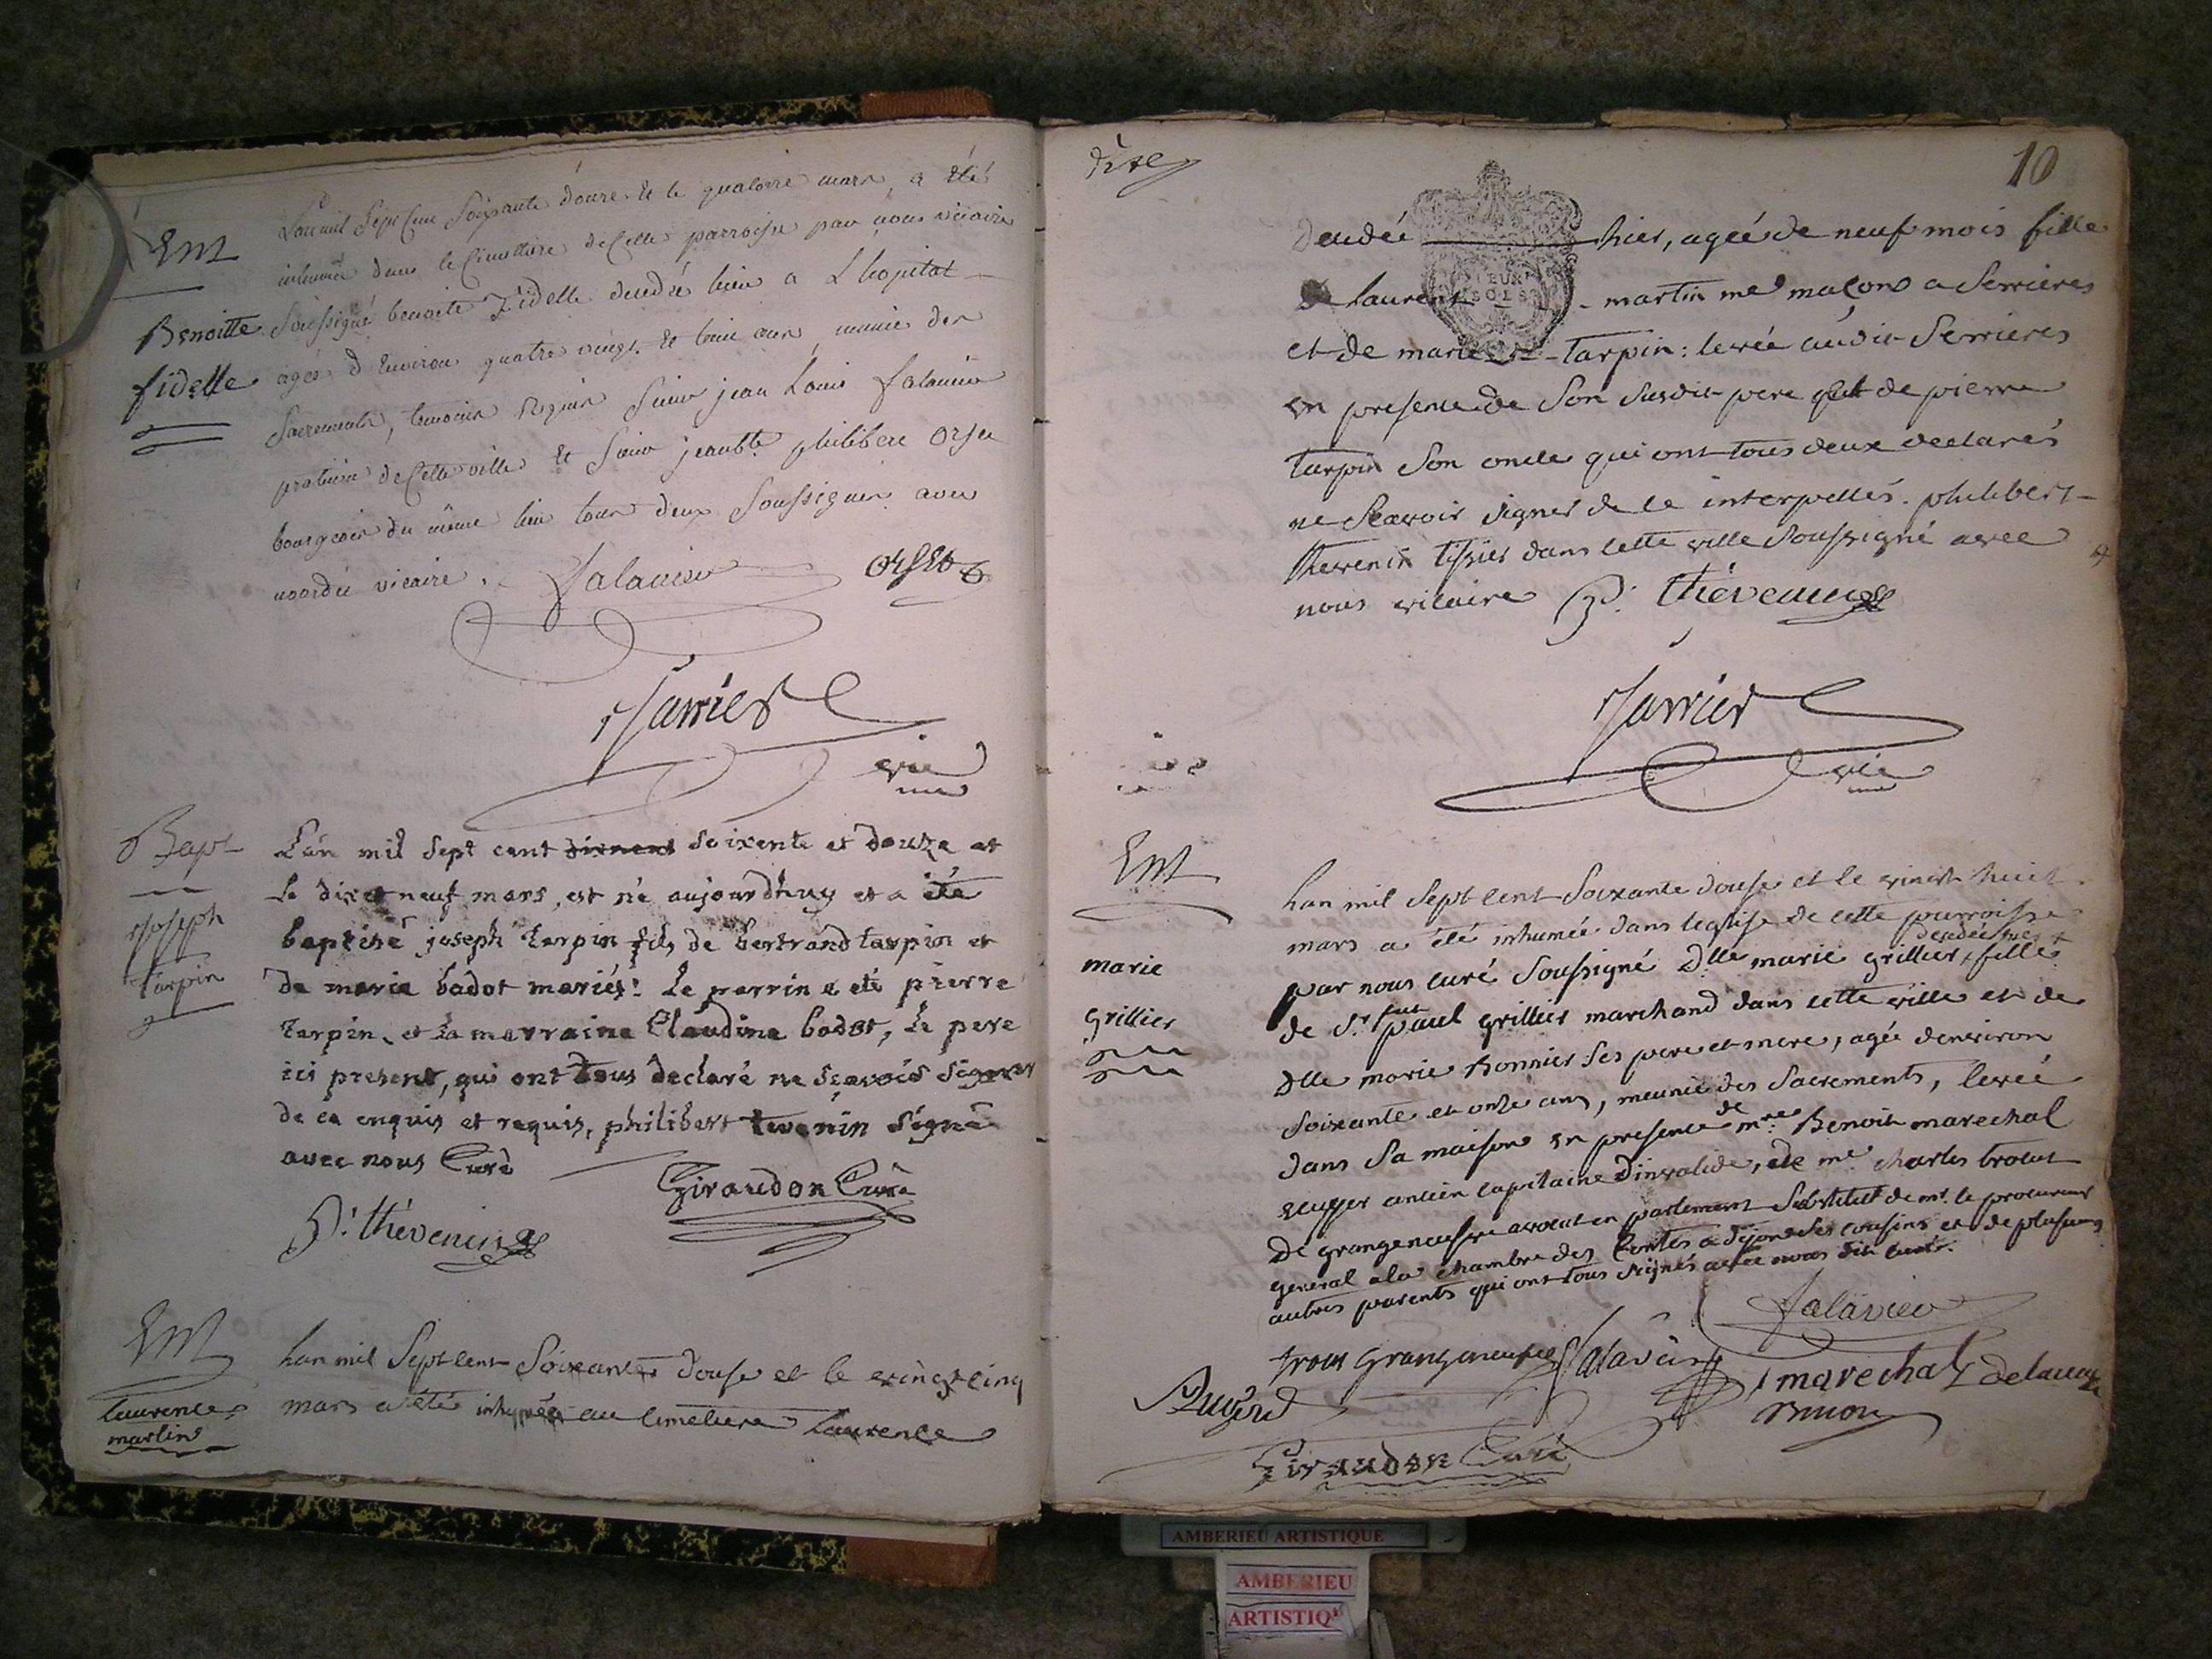 Ent
Benoitte
fidelle
L'an mil Sept Cent Soixante douze et le quatorze mars, a été
inhumée dans le Cimettiere de Cette parroisse par nous vicaire
Soussigné benoite fidelle decedée hier a L hopital
agée d Environ quatre vingt et trois ans, munie des
Sacrements, temoins requis Sieur jean Louis falavier
praticien de Cette ville et Sieur jean bte philibert Orset
bourgeois du même lieu tous deux Soussignés avec
nous dit vicaire. falavier Orset
Jarrier
vic
Bapt
Joseph
tarpin
L'an mil sept cent soixente et douze et
le dix et neuf mars, est né aujourdhuy et a été
baptisé joseph tarpin fils de bertrand tarpin et
de marie badot mariés: Le parrin a eté pierre
tarpin, et la marraine Claudine badot, le pere
ici present, qui ont tous declaré ne sçavoir signer
de ce enquis et requis, philibert tevenin signé
avec nous Curé
Giraudon Curé
P. thévenin
Ent
Laurence
martin
Lan mil Sept cent Soixante douse et le vingt cinq
mars a été inhumée au cimetiere Laurence
10
decedée hier, agée de neuf mois fille
de laurent martin me maçon a Serrieres
et de marie tarpin: levée audit Serrieres
en presence de Son Susdit pere et de pierre
tarpin Son oncle qui ont tous deux declarés
ne Scavoir signer de ce interpellés. philibert
thevenin tissier dans cette ville Soussigné avec
nous vicaire P. thévenin
Jarrier
vic
Ent
marie
grillier
Lan mil Sept cent Soixante douse et le vingt huit
mars a été inhumée dans leglise de cette parroisse
par nous curé Soussigné Dlle marie grillier decedée hier fille
de Sr fut paul grillier marchand dans cette ville et de
Dlle marie bonnier Ses pere et mere, agée denviron
Soixante et onze ans, meunie des Sacrements, levée
dans Sa maison en presence de mre Benoit marechal
ecuyer ancien capitaine dinvalide, de me charles trocu
De grangeneufve avocat en parlement Substitut de mr. le procureur
general a la chambre des Contes a dijon Ses cousins et de plusieurs
autres parents qui ont tous Signés avec nous dit curé.
falavier
trocu Grangeneufve falavier
marechal
Giraudon Curé
AMBERIEU ARTISTIQUE
AMBERIEU
ARTISTIQ